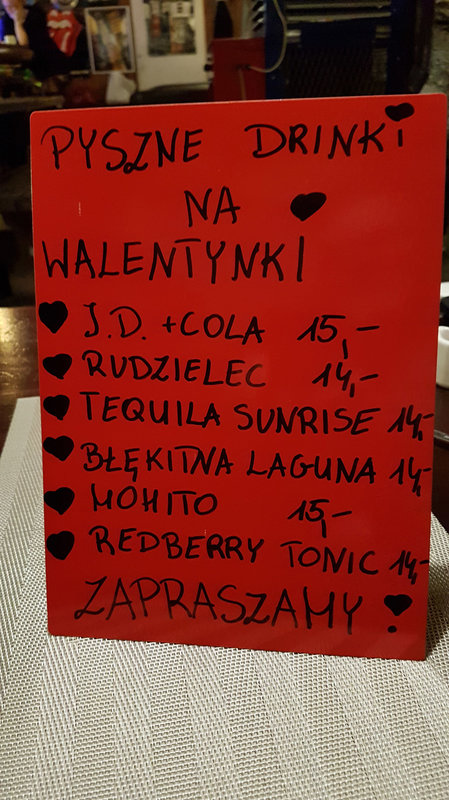 PYSZNE DRINKi
NA
WALENTYNKI
J.D. +COLA 15,-
RUDZIELEC 14,-
TEQUILA SUNRISE 14,-
BŁĘKITNA LAGUNA 14,-
MOHITO 15,-
REDBERRY TONIC 14,-
ZAPRASZAMY !